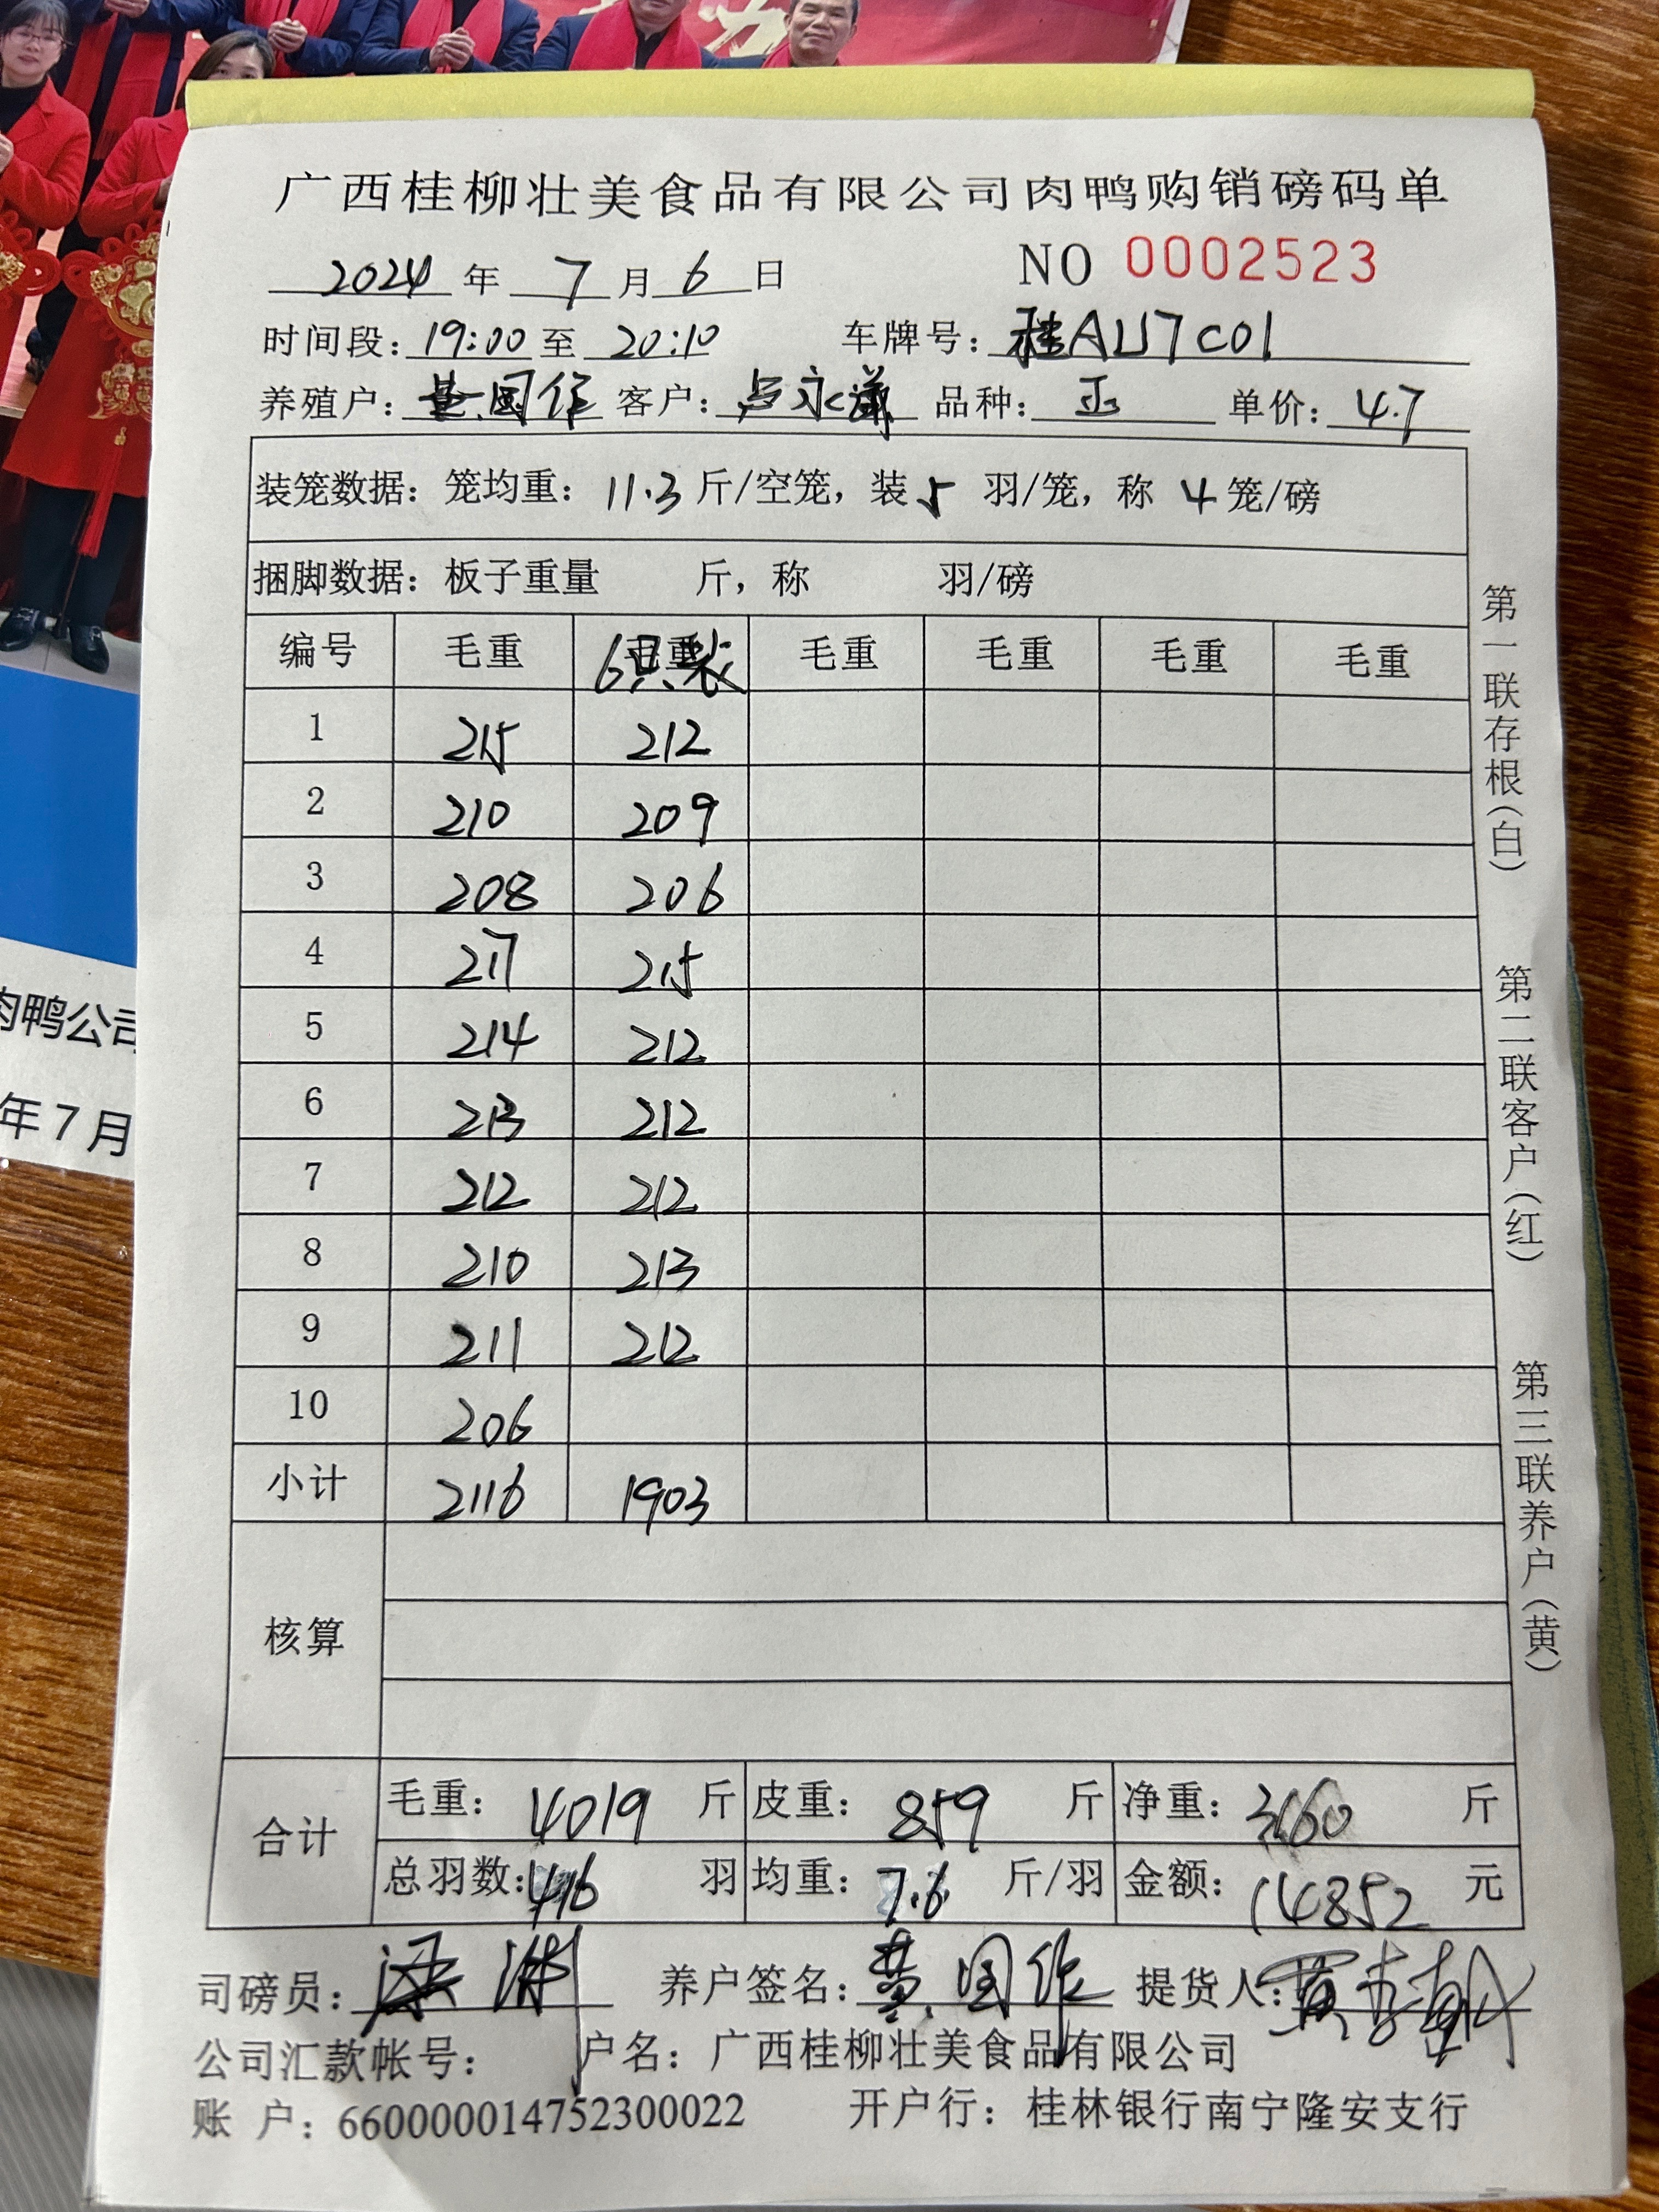 力
肉鸭公司
年7月
广西桂柳壮美食品有限公司肉鸭购销磅码单
2024 年 7 月 6 日 NO 0002523
时间段：19:00 至 20:10 车牌号：桂AU7C01
养殖户：黄国作 客户： 永 品种： 单价：4.7
装笼数据：笼均重：11.3 斤/空笼，装 5 羽/笼，称 4 笼/磅
捆脚数据：板子重量 斤，称 羽/磅
编号 毛重 毛重 6只装 毛重 毛重 毛重 毛重
1 215 212
2 210 209
3 208 206
4 217 215
5 214 212
6 213 212
7 212 212
8 210 213
9 211 212
10 206
小计 2116 1903
核算
合计 毛重：4019 斤 皮重：859 斤 净重：3160 斤
总羽数：416 羽 均重：7.6 斤/羽 金额：14852 元
司磅员：梁 养户签名：黄国作 提货人：黄
公司汇款帐号： 户名：广西桂柳壮美食品有限公司
账 户：660000014752300022 开户行：桂林银行南宁隆安支行
第一联存根（白） 第二联客户（红） 第三联养户（黄）